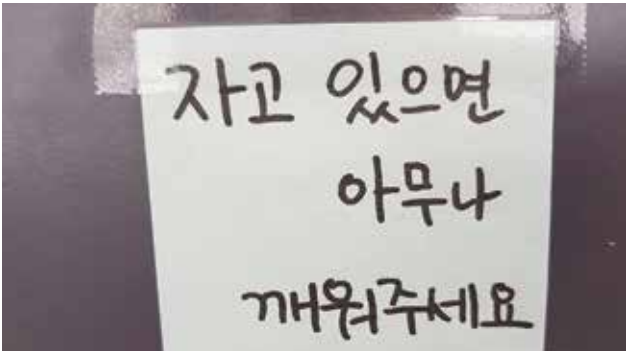 자고 있으면
아무나
깨워주세요